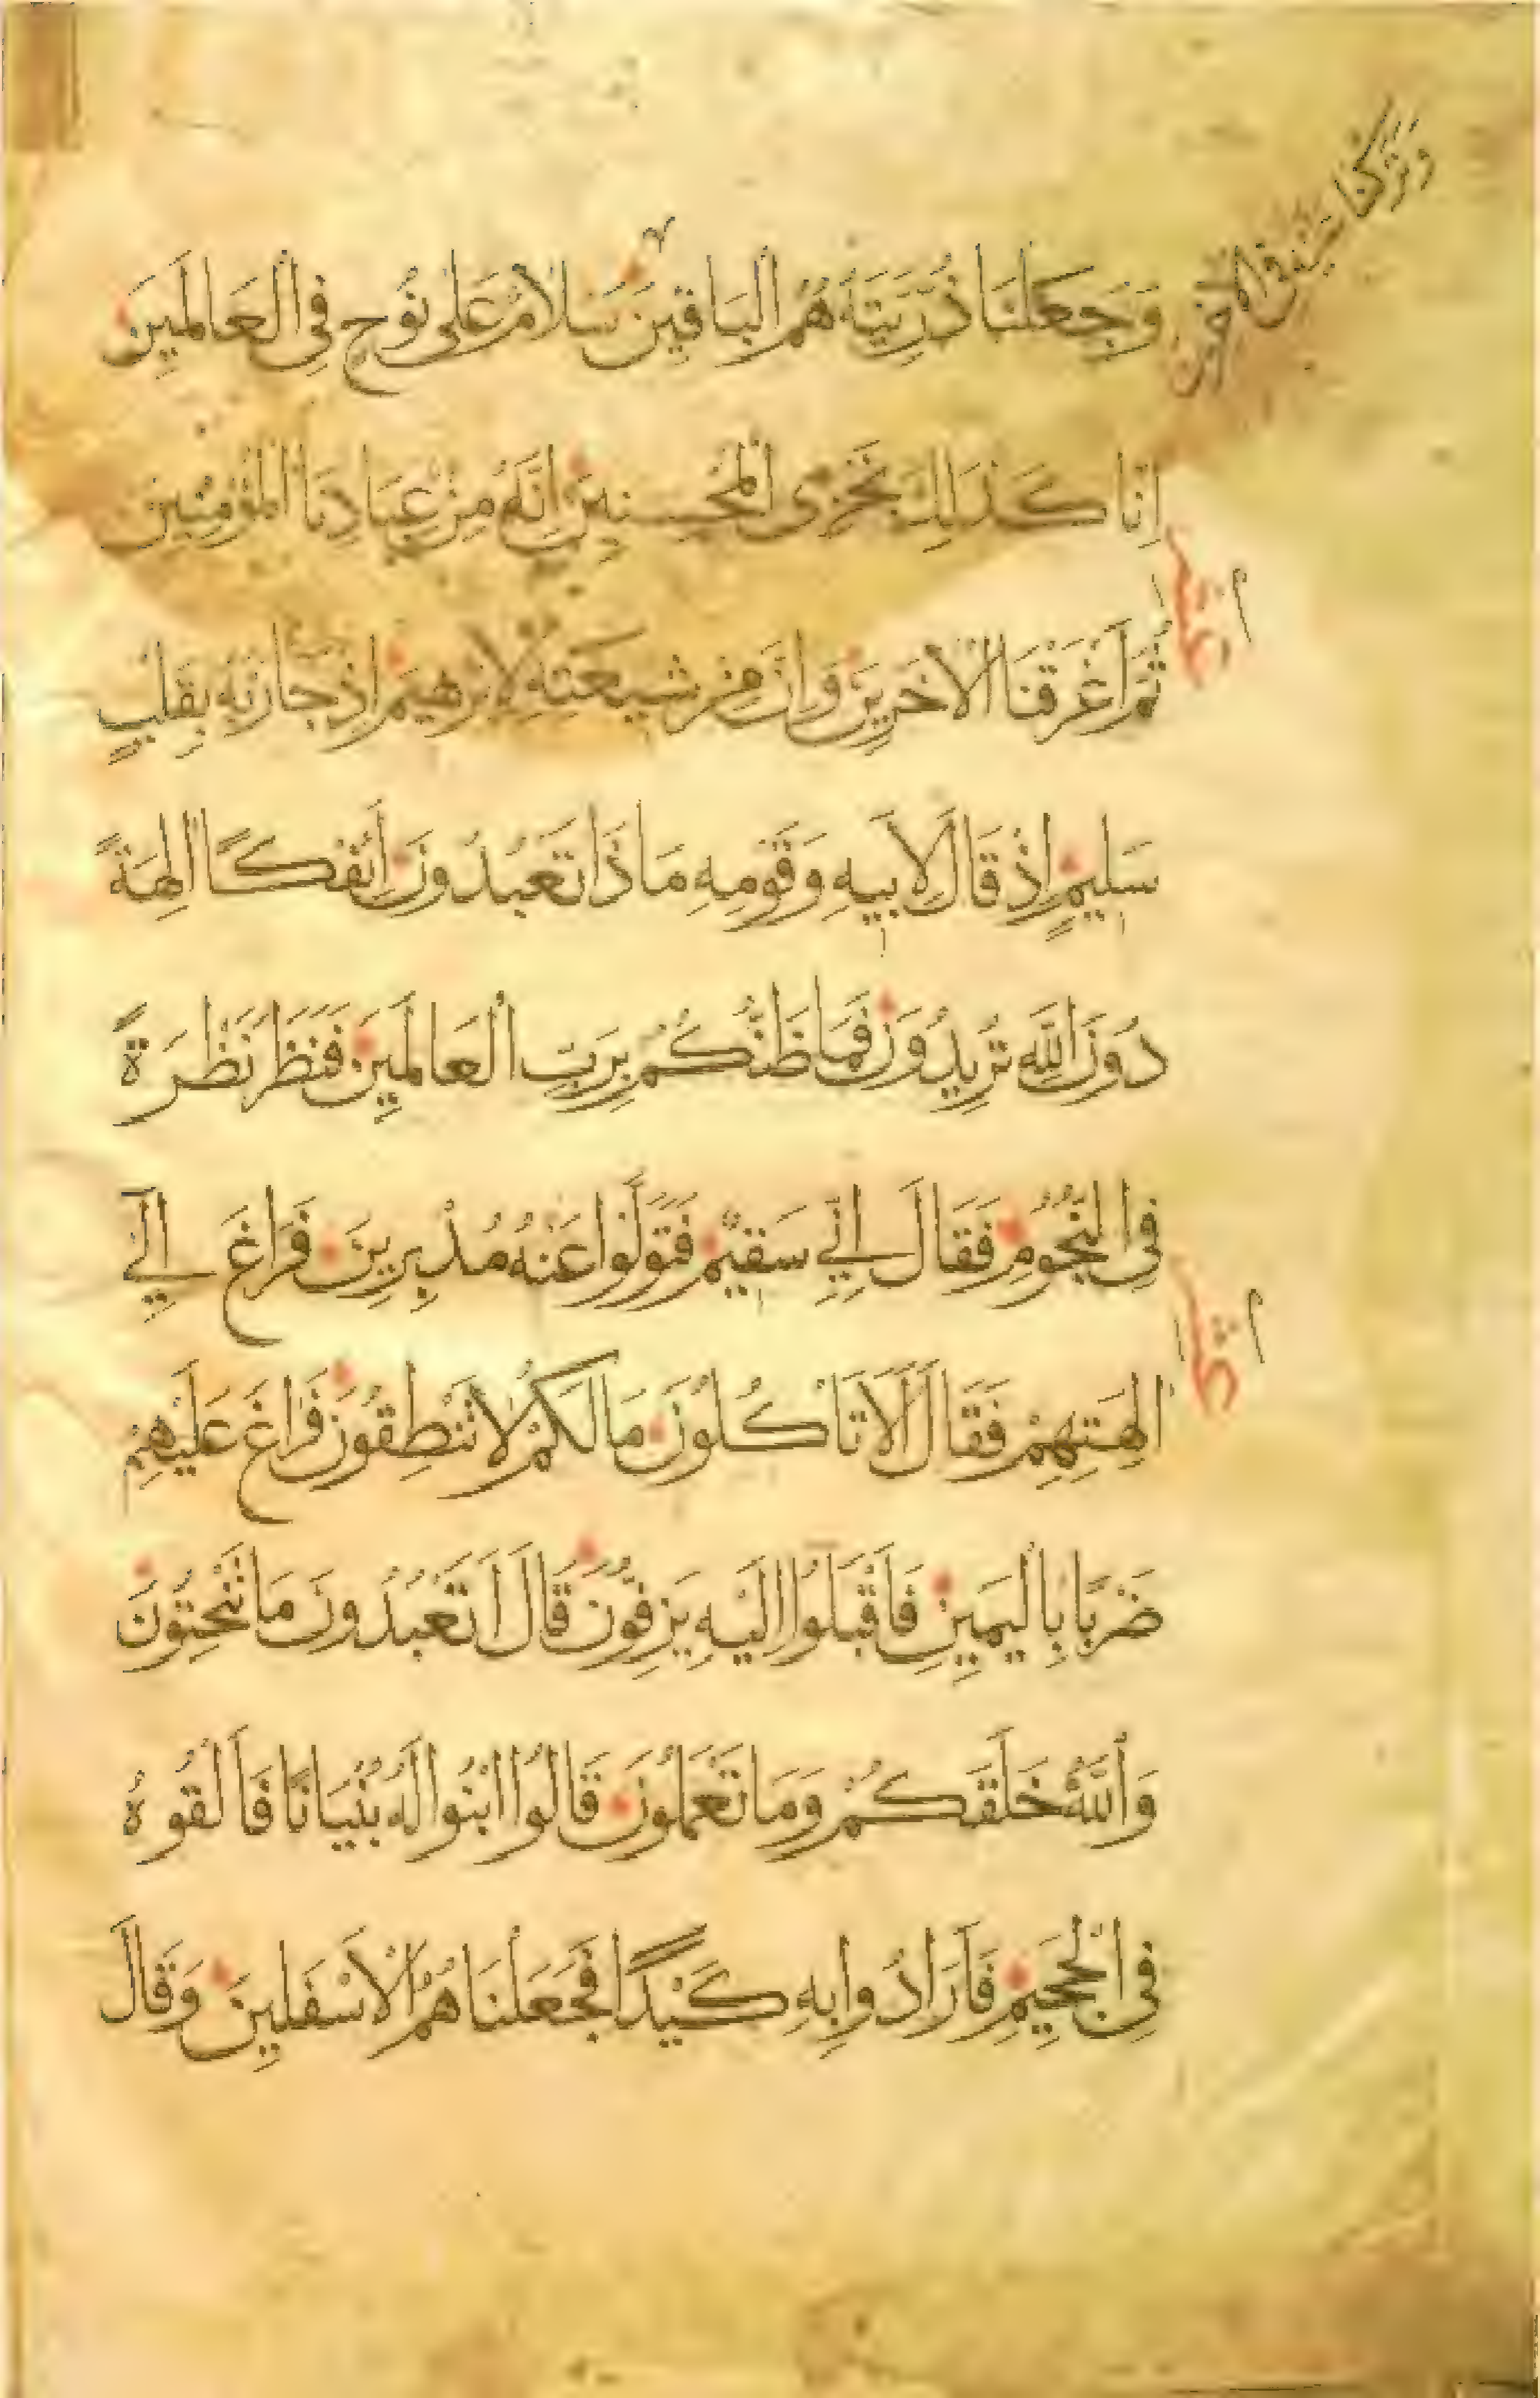 وَتَرَكْنَا عَلَيْهِ فِي الْآخِرِينَ
وَجَعَلْنَا ذُرِّيَّتَهُ هُمُ الْبَاقِينَ سَلَامٌ عَلَى نُوحٍ فِي الْعَالَمِينَ
إِنَّا كَذَلِكَ نَجْزِي الْمُحْسِنِينَ إِنَّهُ مِنْ عِبَادِنَا الْمُؤْمِنِينَ
ثُمَّ أَغْرَقْنَا الْآخَرِينَ وَإِنَّ مِنْ شِيعَتِهِ لَإِبْرَهِيمَ إِذْ جَاءَ رَبَّهُ بِقَلْبٍ
سَلِيمٍ إِذْ قَالَ لِأَبِيهِ وَقَوْمِهِ مَاذَا تَعْبُدُونَ أَئِفْكًا آلِهَةً
دُونَ اللَّهِ تُرِيدُونَ فَمَا ظَنُّكُمْ بِرَبِّ الْعَالَمِينَ فَنَظَرَ نَظْرَةً
فِي النُّجُومِ فَقَالَ إِنِّي سَقِيمٌ فَتَوَلَّوْا عَنْهُ مُدْبِرِينَ فَرَاغَ إِلَى
آلِهَتِهِمْ فَقَالَ أَلَا تَأْكُلُونَ مَا لَكُمْ لَا تَنْطِقُونَ فَرَاغَ عَلَيْهِمْ
ضَرْبًا بِالْيَمِينِ فَأَقْبَلُوا إِلَيْهِ يَزِفُّونَ قَالَ أَتَعْبُدُونَ مَا تَنْحِتُونَ
وَاللَّهُ خَلَقَكُمْ وَمَا تَعْمَلُونَ قَالُوا ابْنُوا لَهُ بُنْيَانًا فَأَلْقُوهُ
فِي الْجَحِيمِ فَأَرَادُوا بِهِ كَيْدًا فَجَعَلْنَاهُمُ الْأَسْفَلِينَ وَقَالَ